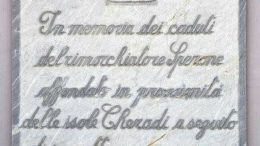 In memoria dei caduti
del rimorchiatore Sperone
affondato in prossimità
delle isole Cheradi a seguito